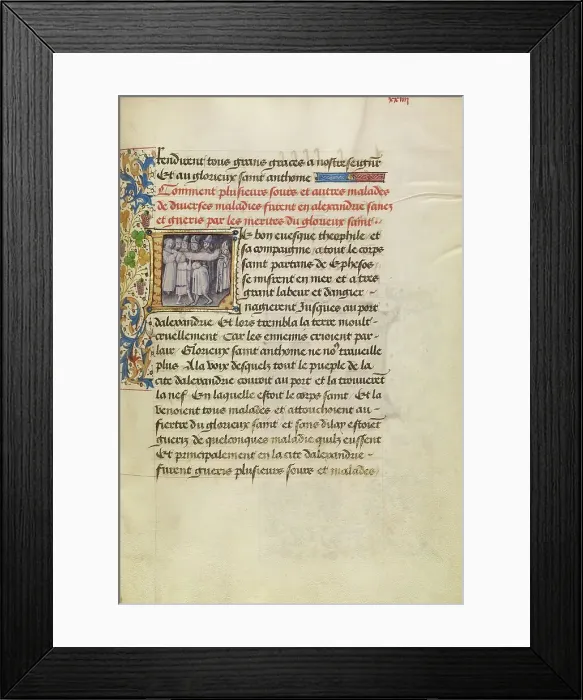 xxiiij
rendirent tous grans graces a nostre seigneur
Et au glorieux saint anthoine
Comment plusieurs sours et autres malades
de diverses maladies furent en alexandrie sanez
et gueris par les merites du glorieux saint
Le bon evesque theophile et
sa compaignie a tout le corps
saint partans de Ephesos
se misrent en mer et a tres
grant labeur et dangier
nagierent Jusques au port
dalexandrie Et lors trembla la terre moult
cruellement Car les ennemis crioient par
lair Glorieux saint anthoine ne noꝰ traveille
plus A la voix desquelz tout le pueple de la
cite dalexandrie couroit au port et la trouverēt
la nef En laquelle estoit le corps saint Et la
venoient tous malades et attouchoient au
fiertre du glorieux saint et sans dilay estoiēt
gueriz de quelconques maladie quilz eussent
Et principalement en la cite dalexandrie
furent gueris plusieurs sours et malades